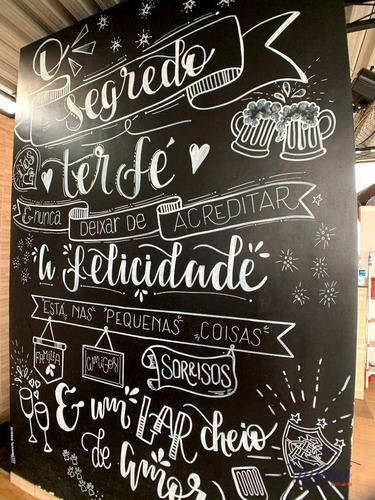 O
segredo
ter fé
& nunca DEIXAR DE ACREDITAR
a felicidade
ESTÁ NAS PEQUENAS COISAS
FAMÍLIA
AMIGOS
SORRISOS
& um LAR cheio
de amor